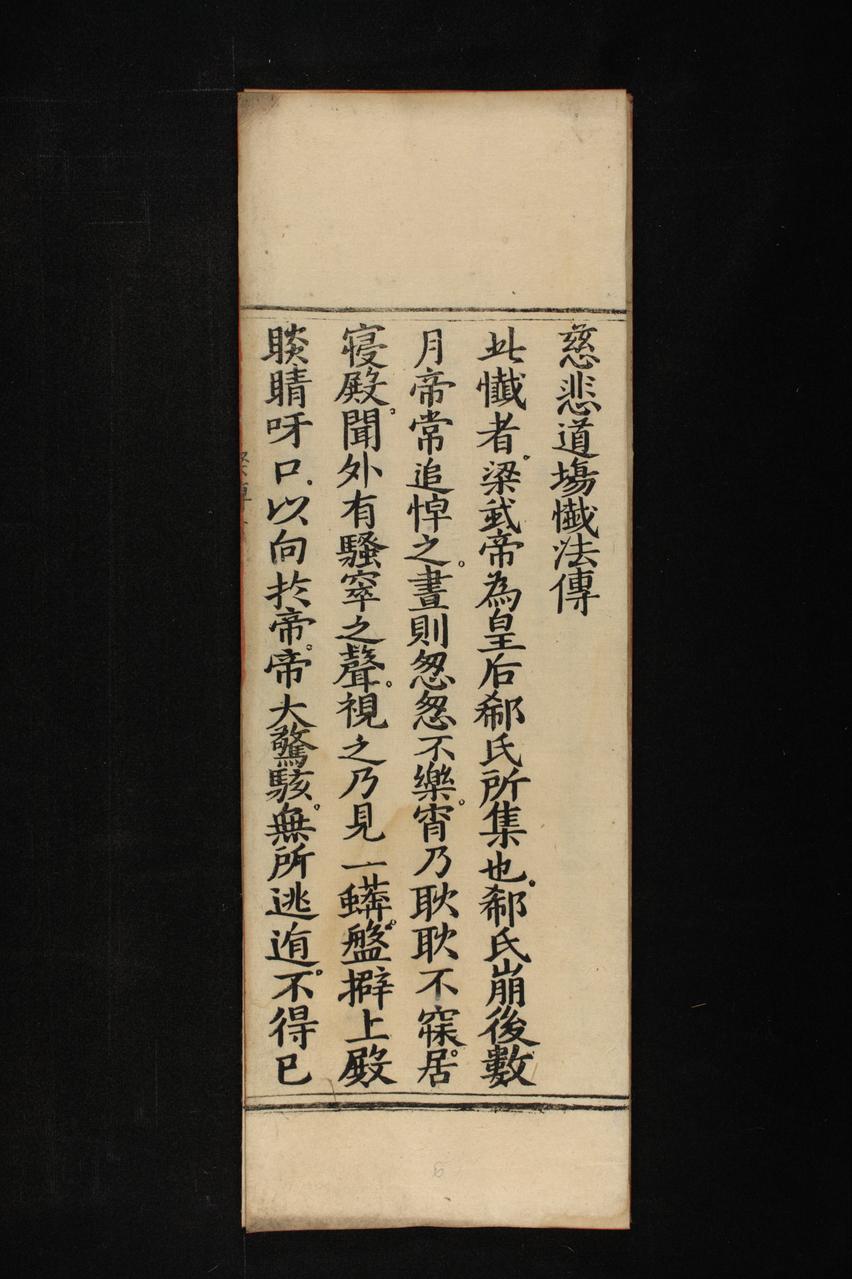 慈悲道塲懺法傳
此懺者。梁武帝為皇后郗氏所集也。郗氏崩後數
月帝常追悼之。晝則怱怱不樂。宵乃耿耿不寐。居
寝殿。聞外有騷窣之聲。視之乃見一蟒。盤擗上殿
睒睛呀口。以向於帝。帝大驚駭。無所逃遁。不得已